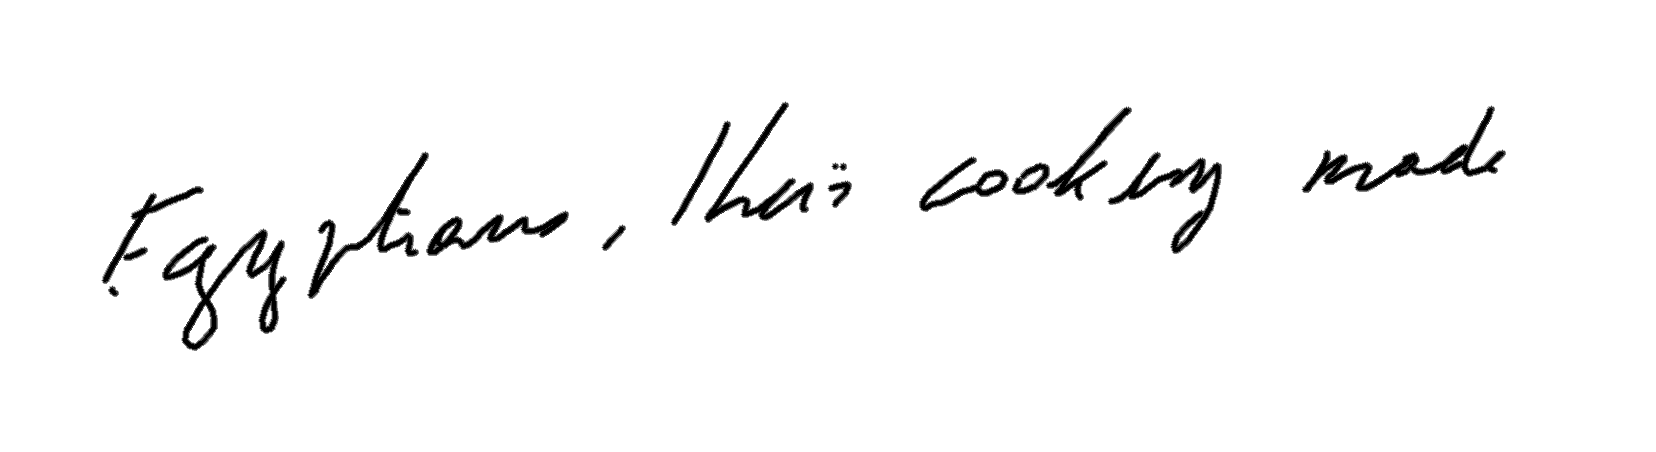 Egyptians, their cooking made